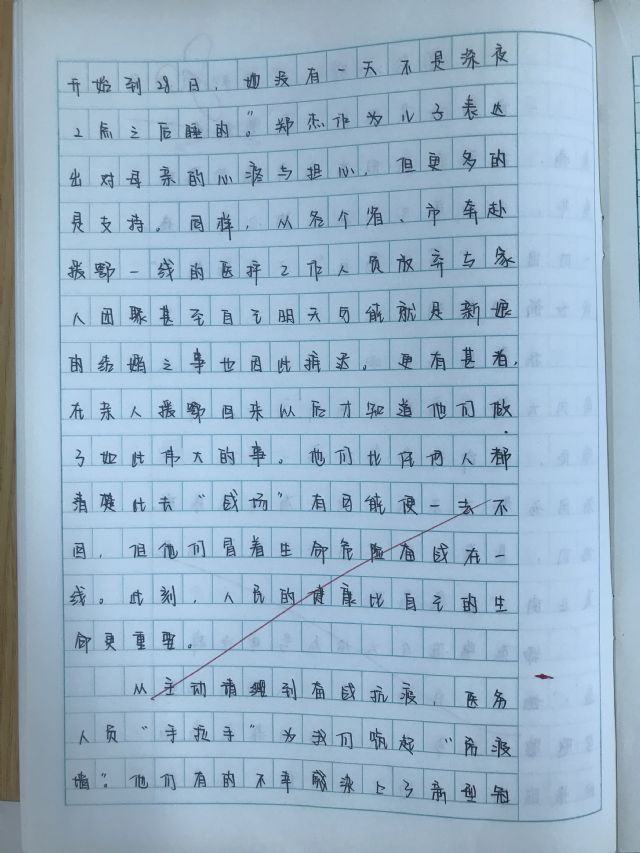 开始到28日，她没有一天不是深夜
2点之后睡的”。郑杰作为儿子表达
出对母亲的心疼与担心，但更多的
是支持。同样，从各个省、市奔赴
援鄂一线的医护工作人员放弃与家
人团聚甚至自己明天可能就是新娘
的结婚之事也因此推迟。更有甚者，
在亲人援鄂回来以后才知道他们做
了如此伟大的事。他们比任何人都
清楚此去“战场”有可能便一去不
回，但他们冒着生命危险奋战在一
线。此刻，人民的健康比自己的生
命更重要。
从主动请缨到奋战抗疫，医务
人员“手拉手”为我们筑起“防疫
墙”。他们有的不幸感染上了新型冠